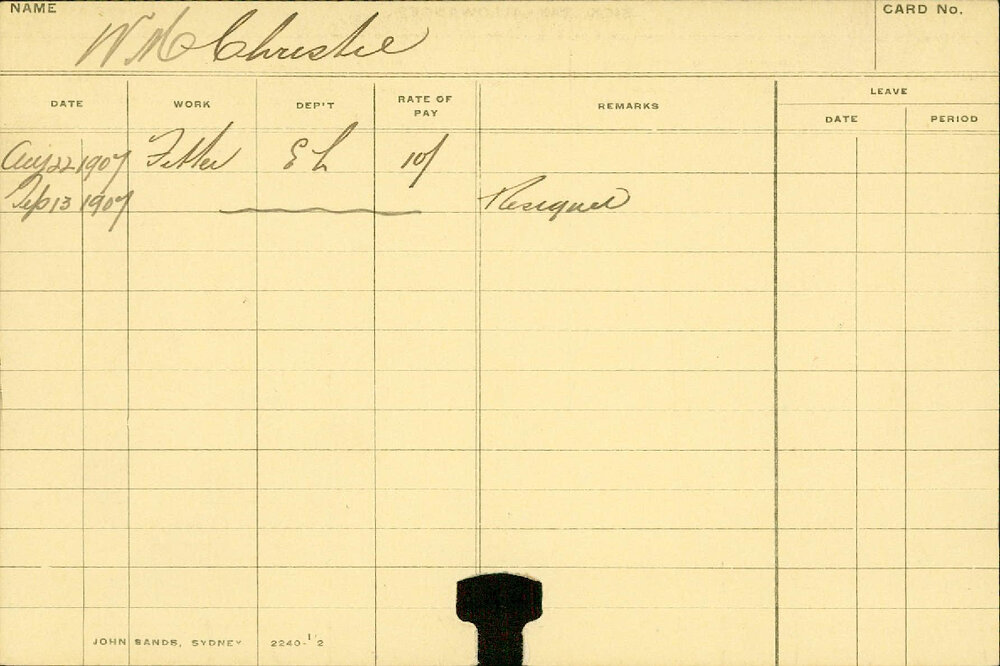 NAME
W M Christie
CARD No.
DATE WORK DEP'T RATE OF PAY REMARKS LEAVE
DATE PERIOD
Aug 22 1907 Fitter E L 10/
Sep 13 1907 Resigned
JOHN SANDS, SYDNEY 2240-1/2